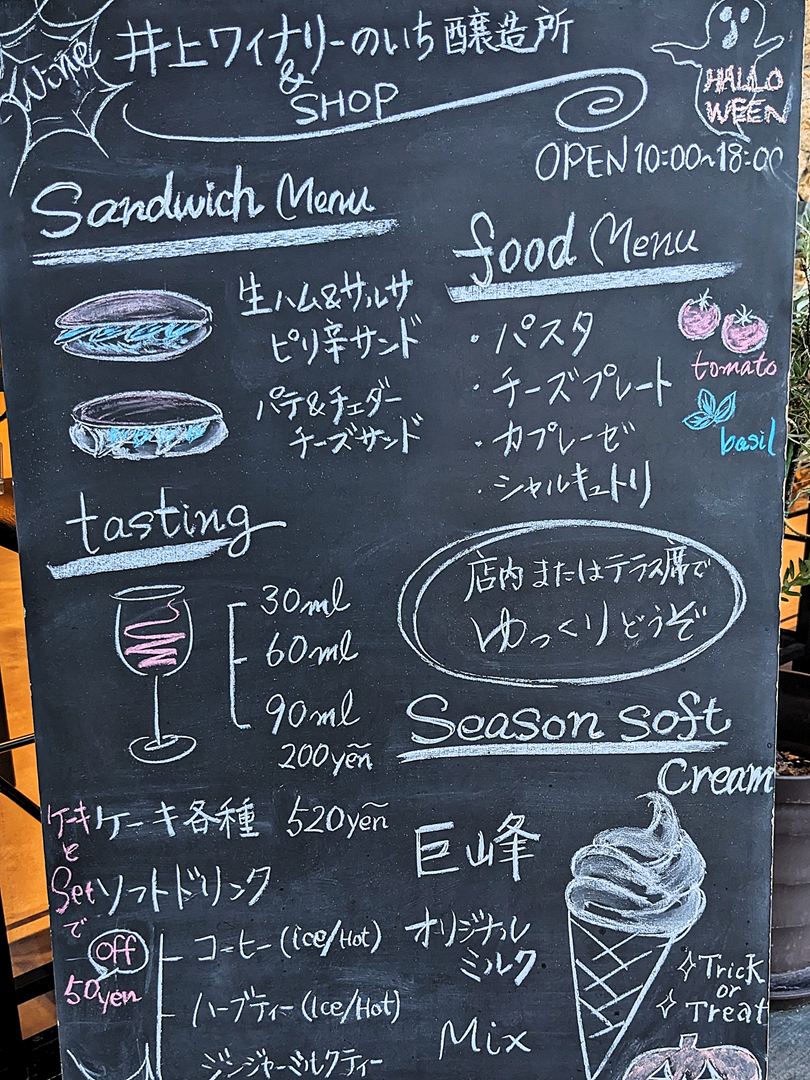 Wine
井上ワイナリーのいち醸造所
&
SHOP
HALLO
WEEN
OPEN 10:00~18:00
Sandwich Menu
生ハム&サルサ
ピリ辛サンド
パテ&チェダー
チーズサンド
food Menu
・パスタ
・チーズプレート
・カプレーゼ
・シャルキュトリ
tomato
basil
tasting
30ml
60ml
90ml
200yen
店内またはテラス席で
ゆっくりどうぞ
Season Soft
Cream
巨峰
オリジナル
ミルク
Mix
ケーキ各種 520yen
ソフトドリンク
コーヒー(ice/Hot)
ハーブティー(Ice/Hot)
ジンジャーミルクティー
ケーキ
と
Set
で
off
50yen
Trick
or
Treat